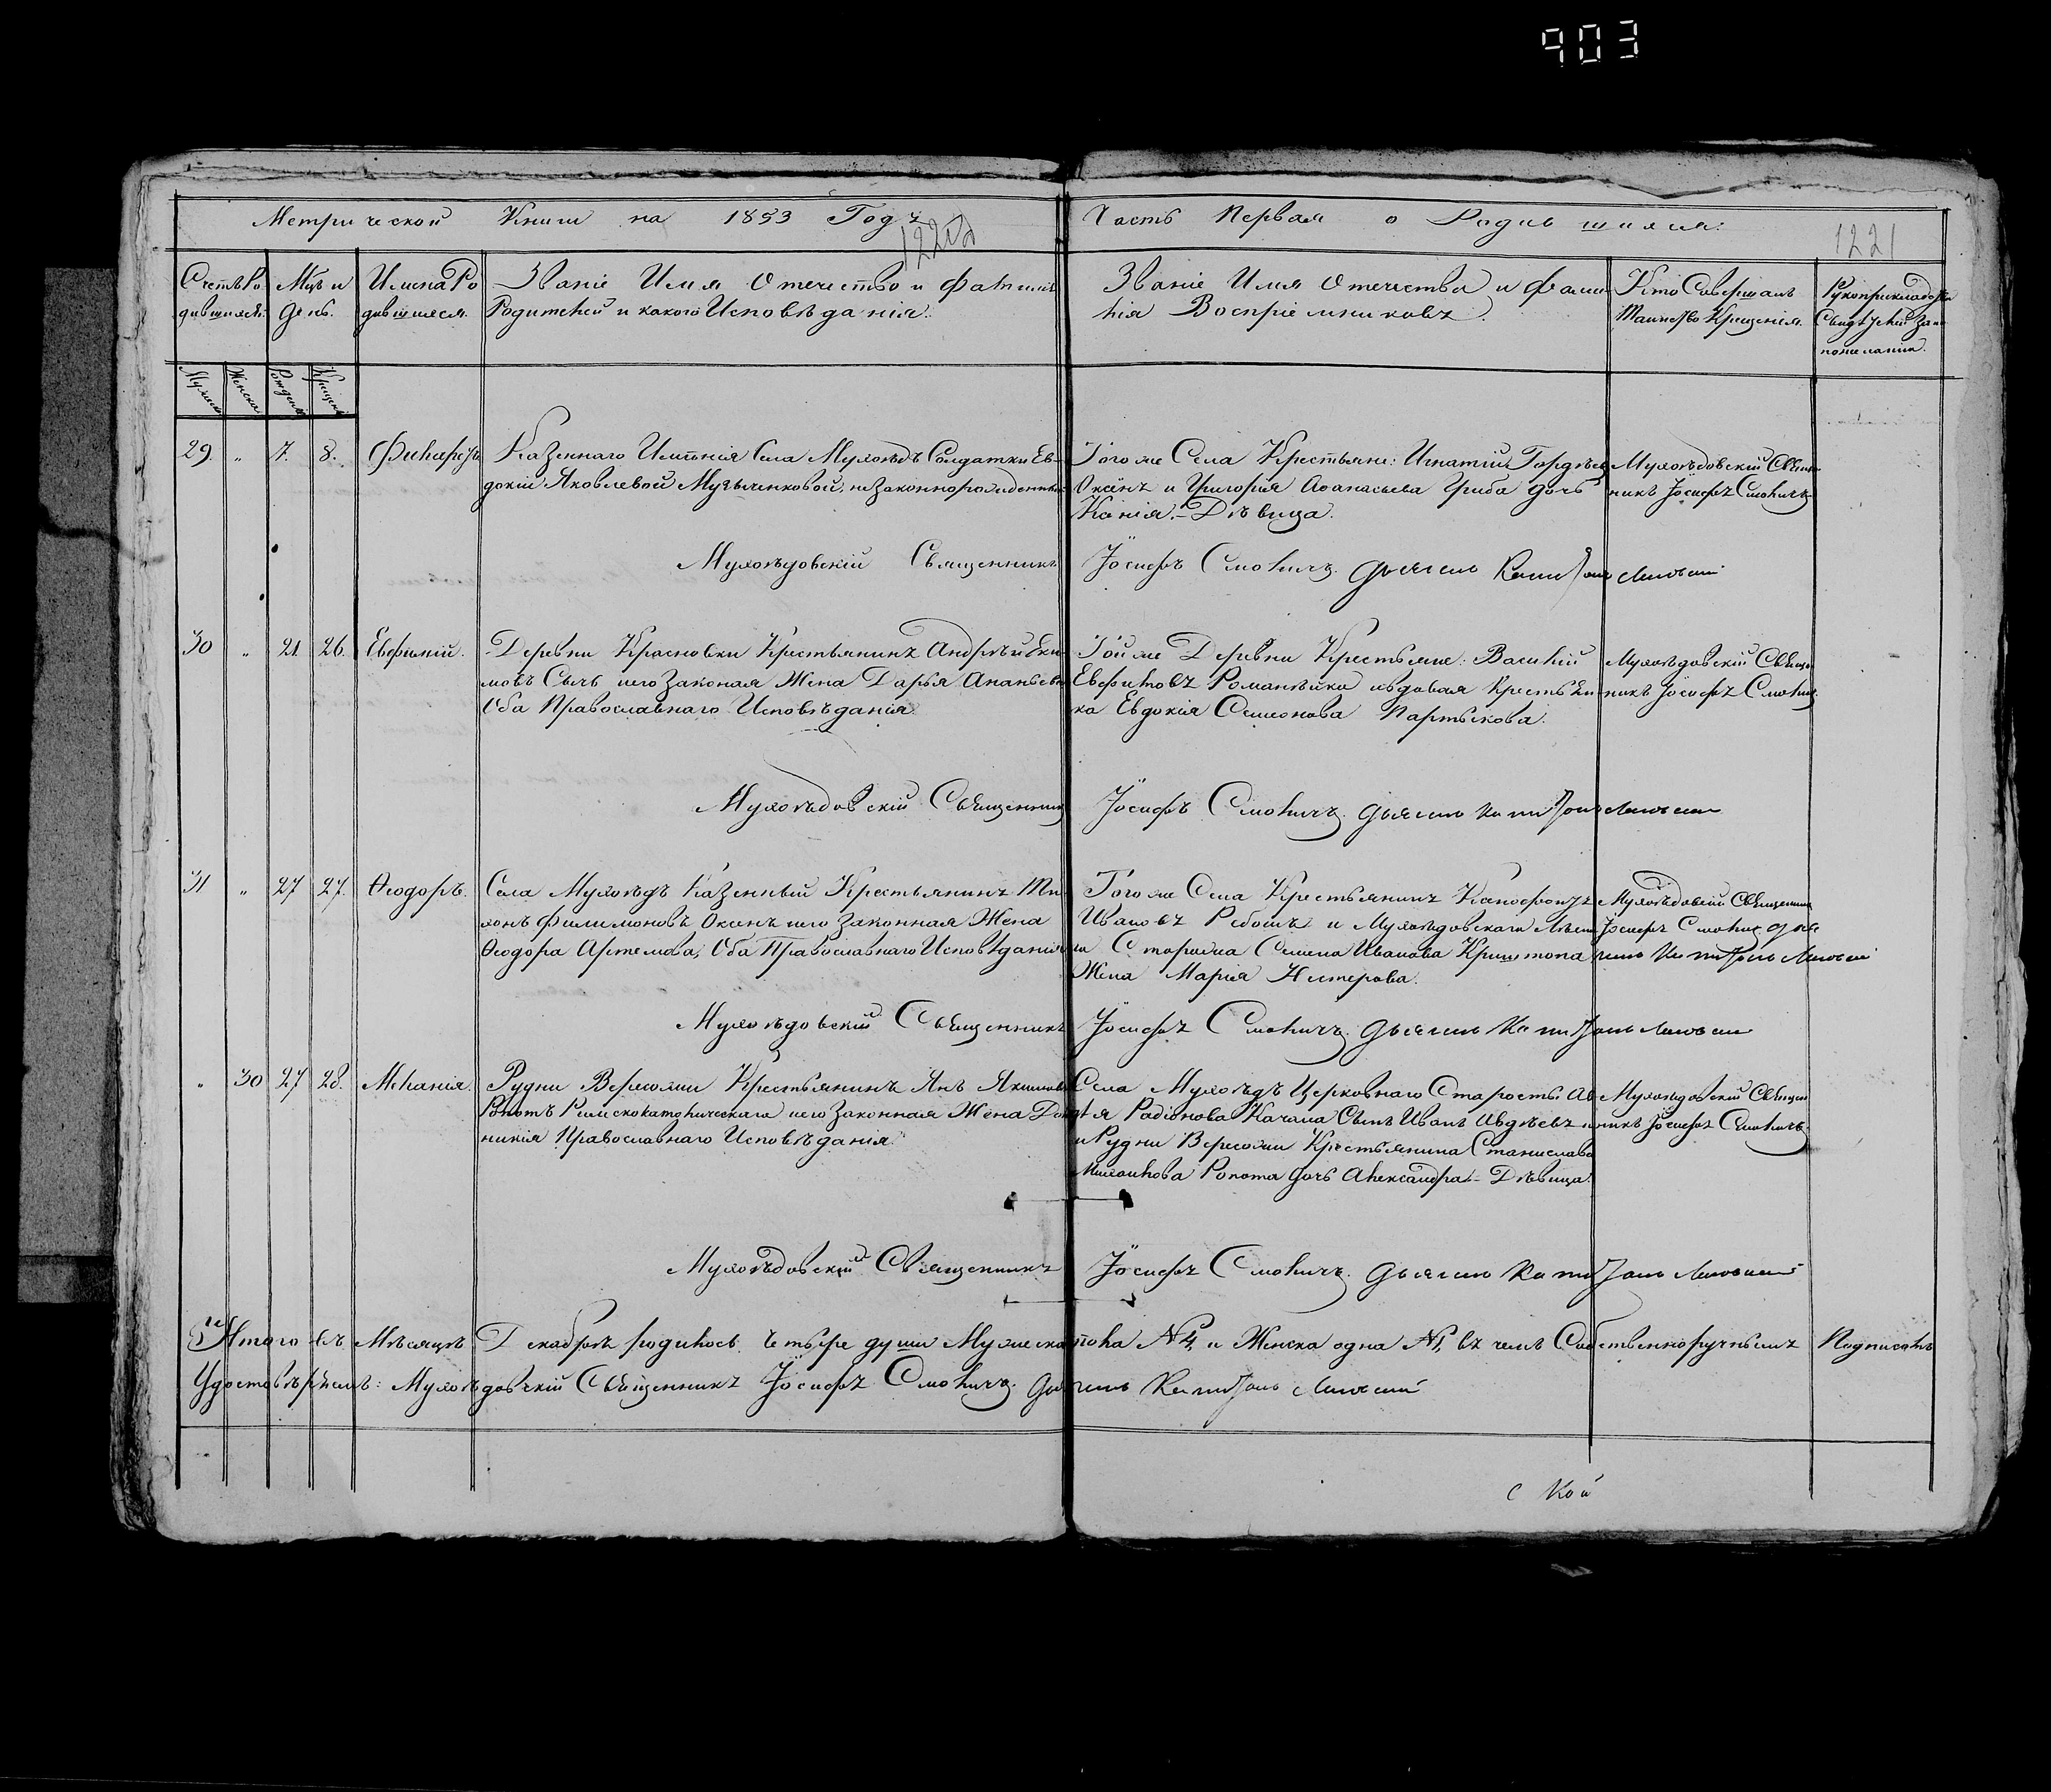 903
Метрической Книги на 1853 Годъ
Часть Первая о Родившихся:
1221
Счетъ Родившихся.
Мцъ и День.
Имена Родившихся.
Званіе Имя Отечество и Фамилія
Родителей и какого Исповѣданія.
Званіе Имя Отечества и Фамилія
Воспріемниковъ.
Кто Совершалъ
Таинство Крещенія.
Рукоприкладство
Свидѣтелей
по желанію.
Мужеска
Женска
Рожденія
Крещенія
29. „ 7. 8.
Казеннаго Имѣнія Села Мухоѣдъ Солдатки Ев-
докіи Яковлевой незаконнорожденный
Того же Села Крестьяне: Игнатій Гордѣевъ
Оксенъ и Григорія Аѳанасьева Гриба дочь
Дѣвица.
Мухоѣдовскій Священ-
никъ Іосифъ Смоличъ
Мухоѣдовскій Священникъ Іосифъ Смоличъ. Дьячекъ Капитонъ
30 „ 21. 26. Евфимій.
Деревни Красновки Крестьянинъ Андрѣй Еки-
мовъ Сычъ и его Законая Жена Дарья Ананьева
Оба Православнаго Исповѣданія.
Той же Деревни Крестьяне: Василій
Романѣйко и вдовая Крестьян-
ка Евдокія Семіонова
Мухоѣдовскій Священ-
никъ Іосифъ Смоличъ
Мухоѣдовскій Священникъ Іосифъ Смоличъ. Дьячекъ Капитонъ
31 „ 27 27. Ѳеодоръ.
Села Мухоѣдъ Казенный Крестьянинъ Ти-
хонъ Филимоновъ Оксенъ и его Законная Жена
Ѳеодора Артемова, Оба Православнаго Исповѣданія
Того же Села Крестьянинъ Ксенофонтъ
Ивановъ и Мухоѣдовскаго
Сторожа Семена Иванова Криштопа
Жена Марія Нестерова.
Мухоѣдовскій Священникъ
Іосифъ Смоличъ Дья-
чекъ Капитонъ
Мухоѣдовскій Священникъ Іосифъ Смоличъ. Дьячекъ Капитонъ
„ 30 27 28. Меланія.
Рудни Вересожи Крестьянинъ Янъ Якимовъ
Ропотъ Римскокатолическаго и его Законная Жена Дом-
никія Православнаго Исповѣданія.
Села Мухоѣдъ Церковнаго Старосты Ав-
дѣя Радіонова Качана Сынъ Иванъ Авдѣевъ
и Рудни Вересожи Крестьянина Станислава
Ропота дочь Александра - Дѣвица.
Мухоѣдовскій Священ-
никъ Іосифъ Смоличъ
Мухоѣдовскій Священникъ Іосифъ Смоличъ. Дьячекъ Капитонъ
Итого въ Мѣсяцѣ Декабрѣ родилось четыре души Мужеска пола №4, и Женска одна №1, въ чемъ Собственноручнымъ Подписомъ
Удостовѣряемъ: Мухоѣдовскій Священникъ Іосифъ Смоличъ. Дьячекъ Капитонъ
с кой